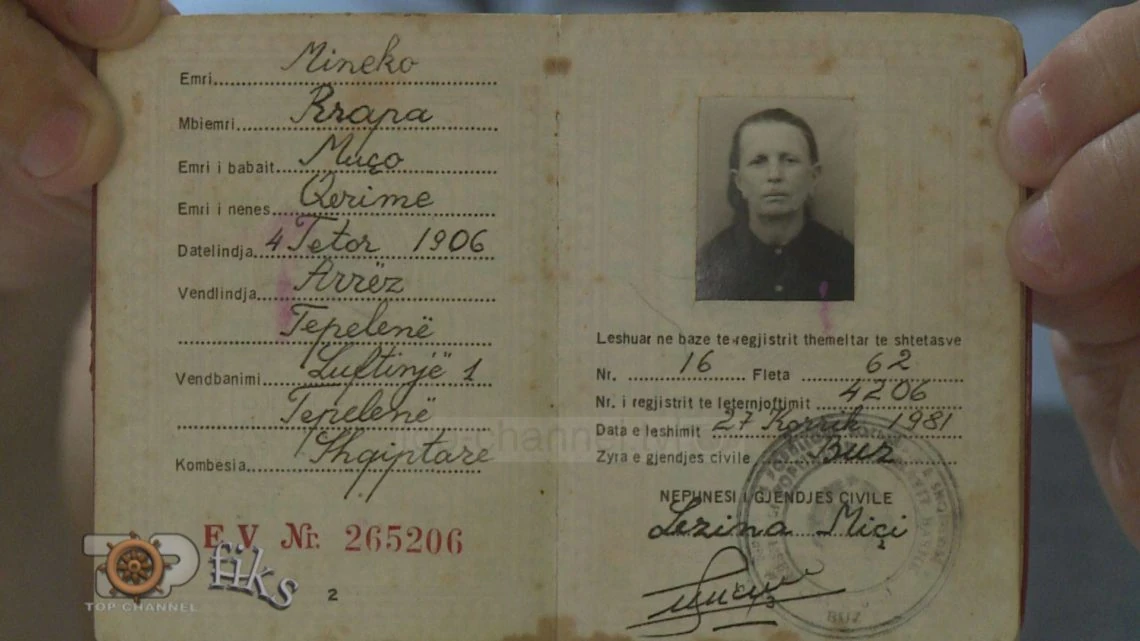 Emri Mineko
Mbiemri Rrapa
Emri i babait Muço
Emri i nenes Qerime
Datelindja 4 Tetor 1906
Vendlindja Arrëz
Tepelenë
Vendbanimi Luftinjë 1
Tepelenë
Kombesia Shqiptare
E V Nr. 265206
2
Leshuar ne baze te regjistrit themeltar te shtetasve
Nr. 16 Fleta 62
Nr. i regjistrit te leternjoftimit 4206
Data e leshimit 27 Korrik 1981
Zyra e gjendjes civile Buz
NEPUNESI I GJENDJES CIVILE
Lezina Miçi
BUZ
TOP
TOP CHANNEL
fiks